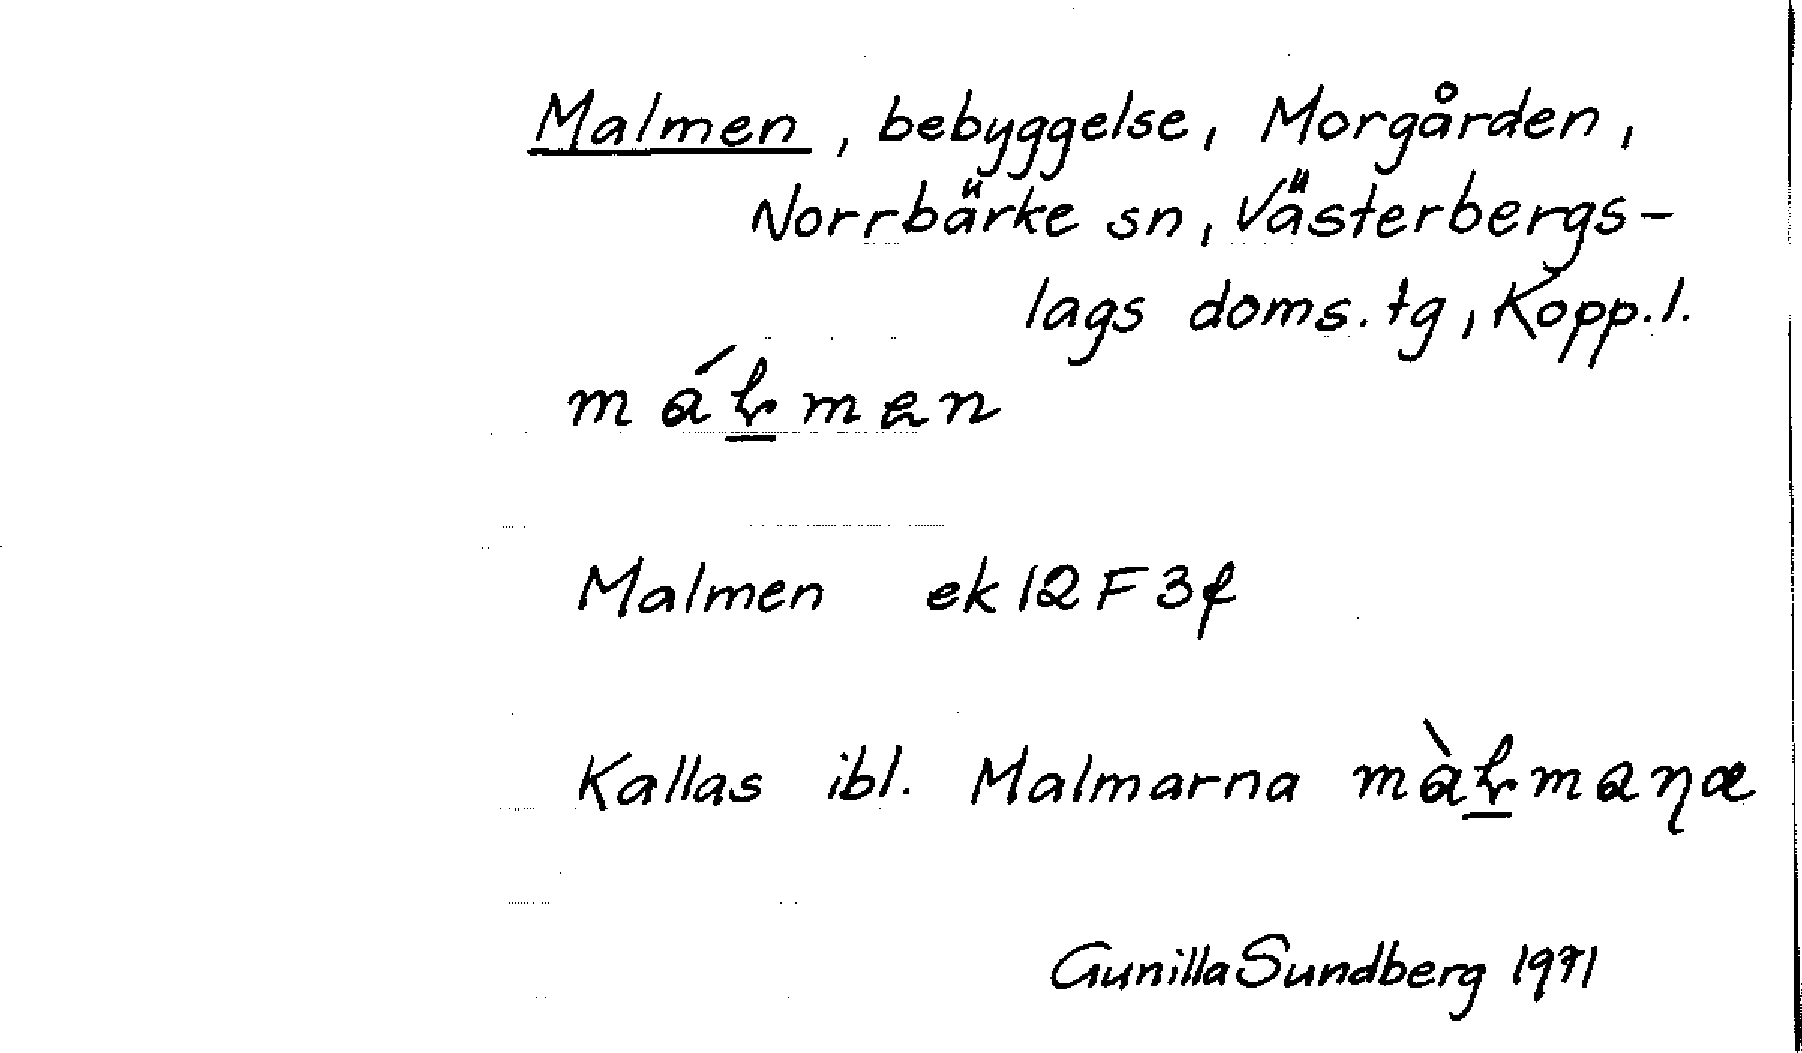 Malmen, bebyggelse, Morgården,
Norrbärke sn, Västerbergs-
lags doms. tg, Kopp. l.
Malmen ek 12 F 3f
Kallas ibl. Malmarna
Gunilla Sundberg 1971